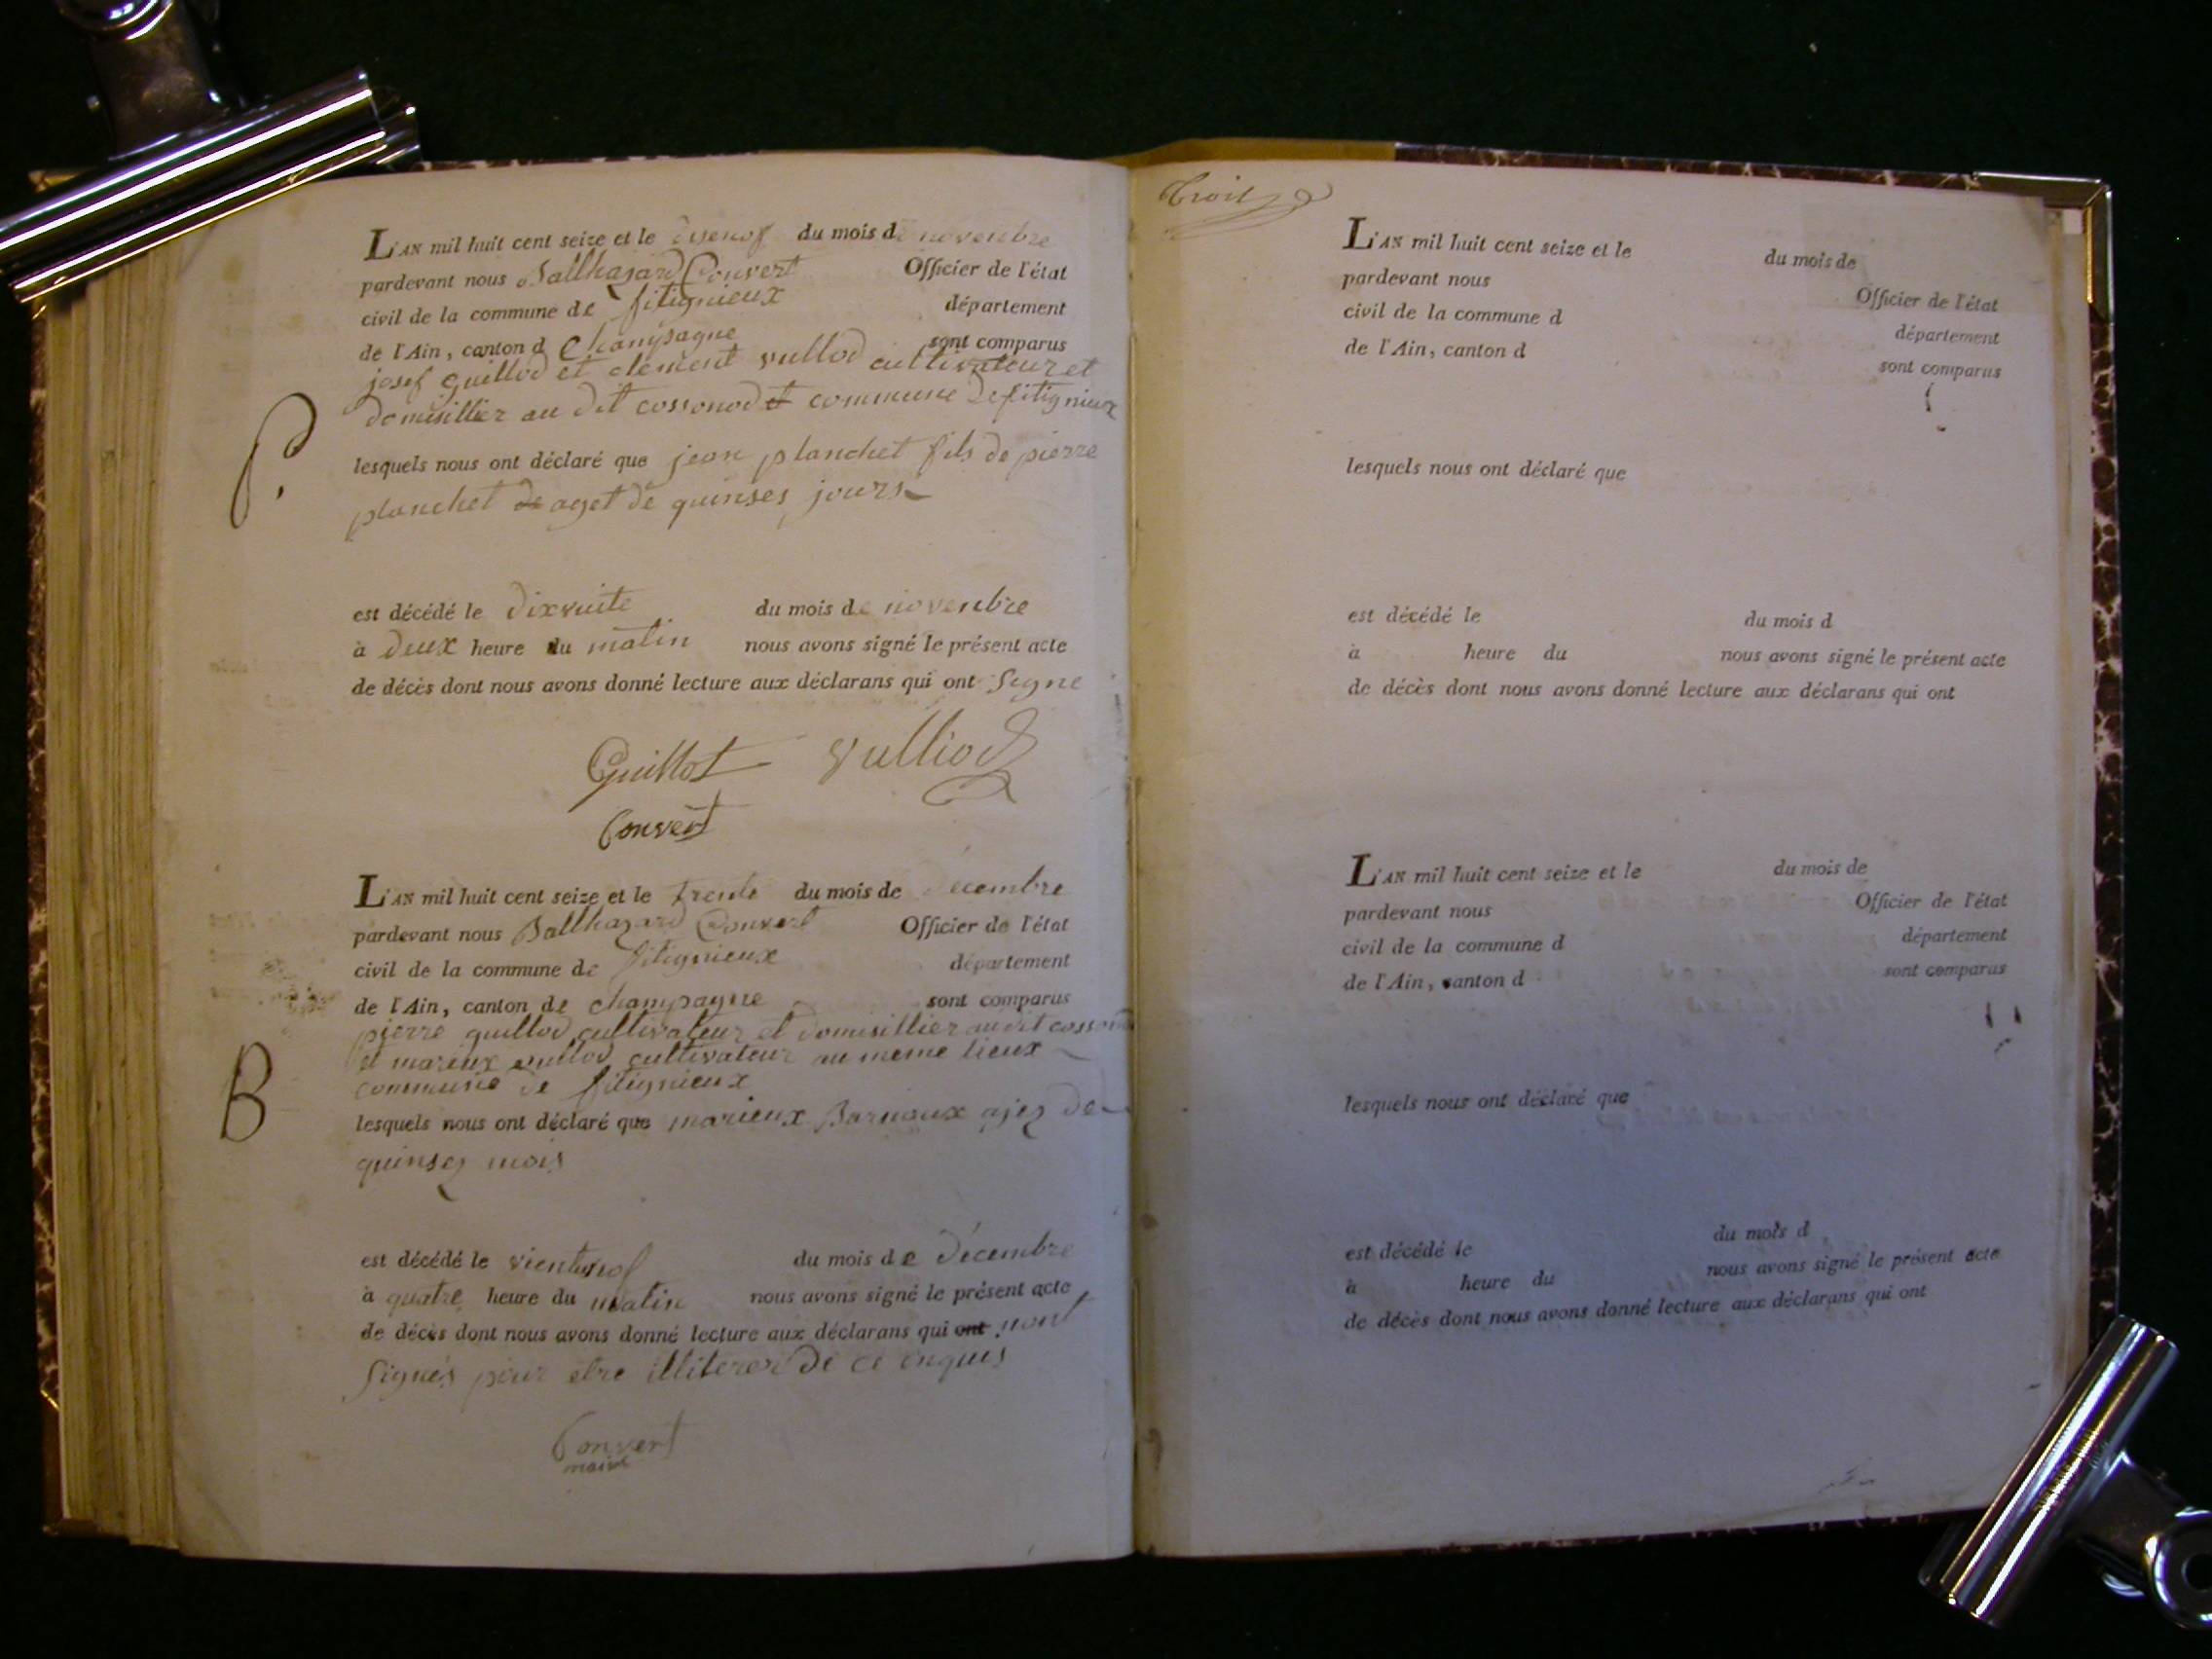 L'AN mil huit cent seize et le disenof du mois de novenbre
pardevant nous Balthazard Convert Officier de l'état
civil de la commune de fitignieux département
de l'Ain, canton d Champagne sont comparus
josef guillod et clement vullod cultivateur et
domisillier au dit cossonod et commune de fitignieux
P.
lesquels nous ont déclaré que jean planchet fils de pierre
planchet de aget de quinses jours
est décédé le dixvuite du mois de novenbre
à deux heure du matin nous avons signé le présent acte
de décès dont nous avons donné lecture aux déclarans qui ont signe
Guillot Vulliod
Convert
L'AN mil huit cent seize et le trente du mois de décembre
pardevant nous Balthazard Convert Officier de l'état
civil de la commune de fitignieux département
de l'Ain, canton de champagne sont comparus
pierre guillod cultivateur et domisillier au dit cossonod
et marieux vullod cultivateur au meme lieux
commune de fitignieux
B
lesquels nous ont déclaré que marieux Barnoux ajez de
quinsez mois
est décédé le vientunof du mois de décembre
à quatre heure du matin nous avons signé le présent acte
de décès dont nous avons donné lecture aux déclarans qui ont nont
signés pour etre illiteres de ce enquis
Convert
maire
Troit
L'AN mil huit cent seize et le du mois de
pardevant nous Officier de l'état
civil de la commune d département
de l'Ain, canton d sont comparus
lesquels nous ont déclaré que
est décédé le du mois d
à heure du nous avons signé le présent acte
de décès dont nous avons donné lecture aux déclarans qui ont
L'AN mil huit cent seize et le du mois de
pardevant nous Officier de l'état
civil de la commune d département
de l'Ain, canton d sont comparus
lesquels nous ont déclaré que
est décédé le du mois d
à heure du nous avons signé le présent acte
de décès dont nous avons donné lecture aux déclarans qui ont